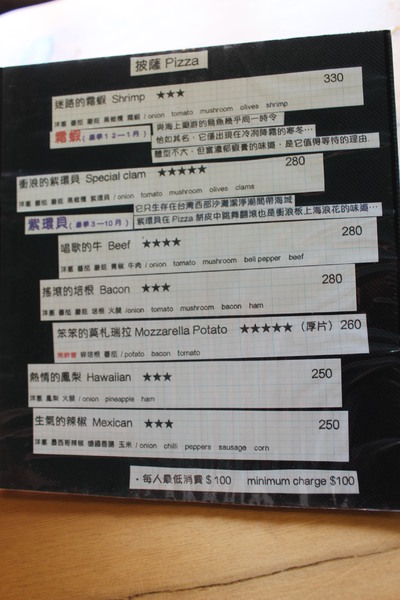 披薩 Pizza
迷路的霜蝦 Shrimp ★★★ 330
洋蔥 番茄 蘑菇 黑橄欖 霜蝦 / onion tomato mushroom olives shrimp
與海上遨游的飛魚幾乎同一時令
霜蝦(盛季12－1月) 他如其名，它僅出現在冷冽降霜的寒冬…
體型不大，但富濃郁蝦膏的味道，是它值得等待的理由.
衝浪的紫環貝 Special clam ★★★★★ 280
洋蔥 番茄 蘑菇 黑橄欖 紫環貝 / onion tomato mushroom olives clams
它只生存在台灣西部沙灘潔淨潮間帶海域
紫環貝(盛季3－10月) 紫環貝在 Pizza 餅皮中跳舞翻滾也是衝浪板上海浪花的味道…
唱歌的牛 Beef ★★★★ 280
洋蔥 番茄 蘑菇 青椒 牛肉 / onion tomato mushroom bell pepper beef
搖滾的培根 Bacon ★★★ 280
洋蔥 番茄 蘑菇 培根 火腿 /onion tomato mushroom bacon ham
笨笨的莫札瑞拉 Mozzarella Potato ★★★★★ (厚片) 260
馬鈴薯 碎培根 番茄 / potato bacon tomato
熱情的鳳梨 Hawaiian ★★★ 250
洋蔥 鳳梨 火腿 / onion pineapple ham
生氣的辣椒 Mexican ★★★ 250
洋蔥 墨西哥辣椒 德國香腸 玉米 / onion chilli peppers sausage corn
・每人最低消費＄100 minimum charge $100